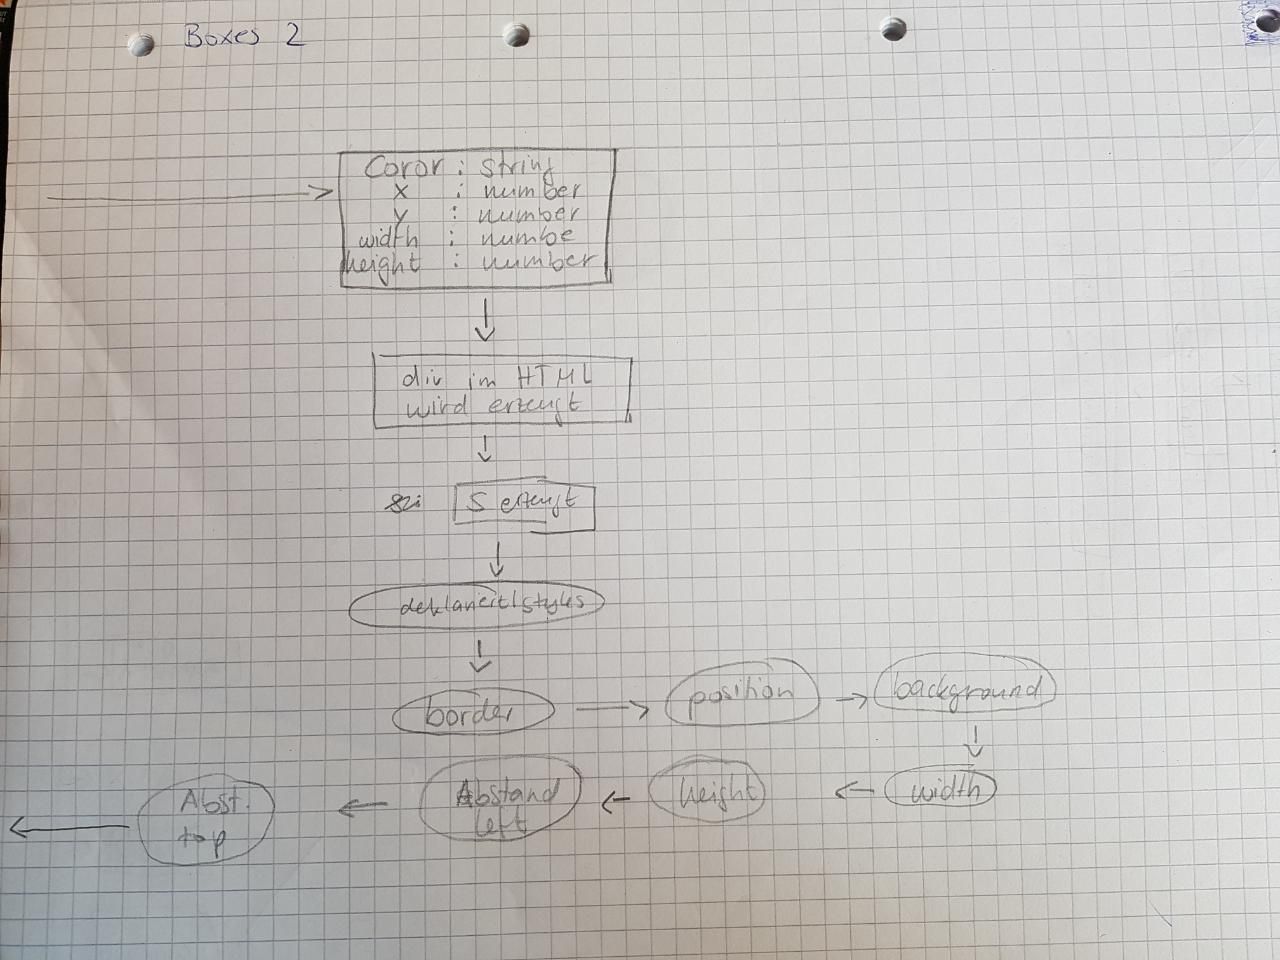 Boxes 2
Coror : string
x : number
y : number
width : numbe
height : number
div im HTML
wird erzeugt
S erzeugt
styles
border
position
background
width
height
Abstand
left
Abst.
top